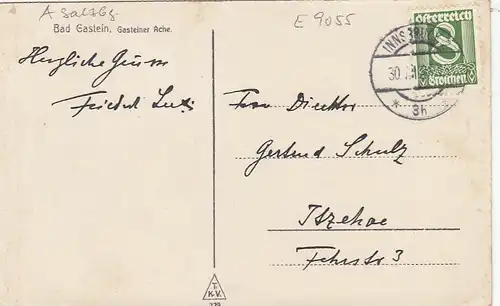 A Salzbg.
E 9055
Bad Gastein, Gasteiner Ache.
Herzliche Grüsse
Friedel
Frau Direktor
Gertrud Schulz
Itzehoe
Fehrsstr 3
INNSBRUCK
30
* 3h *
Österreich
8
Groschen
T.
K.V.
279